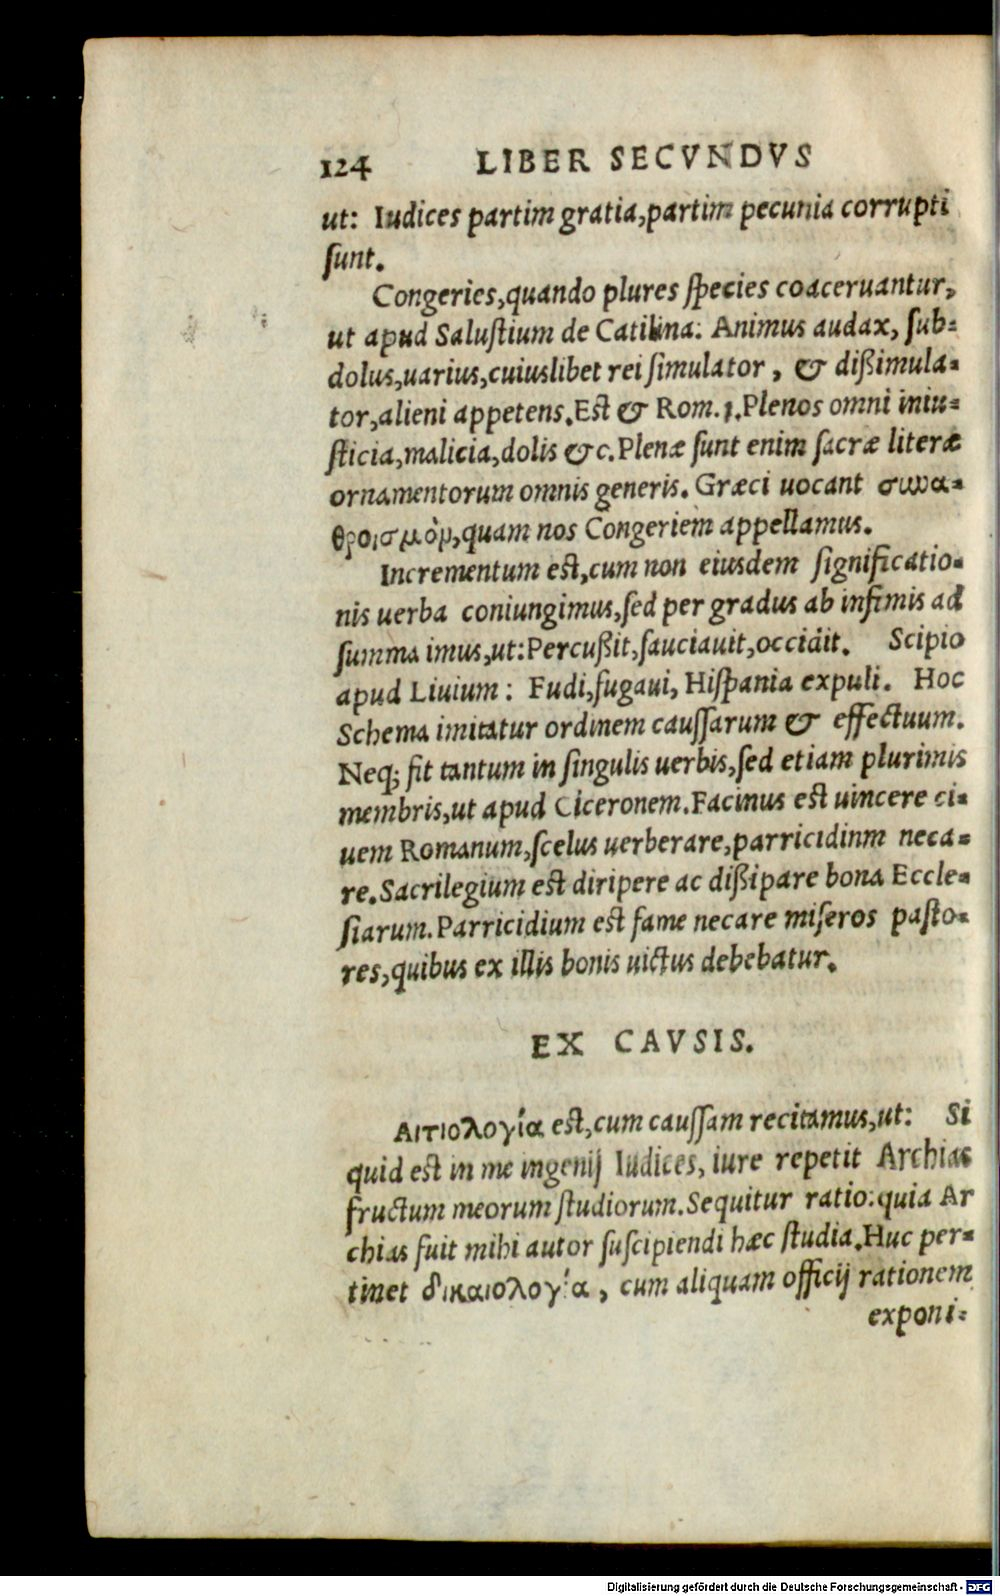 124 LIBER SECVNDVS
ut: Iudices partim gratia,partim pecunia corrupti
ſunt.
Congeries,quando plures ſpecies coaceruantur,
ut apud Saluſtium de Catilina: Animus audax, ſub-
dolus,uarius,cuiuslibet rei ſimulator, & dißimula-
tor,alieni appetens.Est & Rom.1.Plenos omni iniu-
ſticia,malicia,dolis &c.Plenæ ſunt enim ſacræ literæ
ornamentorum omnis generis. Græci uocant συνα-
θροισμὸν,quam nos Congeriem appellamus.
Incrementum est,cum non eiusdem ſignificatio-
nis uerba coniungimus,ſed per gradus ab infimis ad
ſumma imus,ut:Percußit,ſauciauit,occidit. Scipio
apud Liuium: Fudi,fugaui, Hiſpania expuli. Hoc
Schema imitatur ordinem cauſſarum & effectuum.
Neq; fit tantum in ſingulis uerbis,ſed etiam plurimis
membris,ut apud Ciceronem.Facinus est uincere ci-
uem Romanum,ſcelus uerberare,parricidinm neca-
re.Sacrilegium est diripere ac dißipare bona Eccle-
ſiarum.Parricidium est fame necare miſeros paſto-
res,quibus ex illis bonis uictus debebatur.
EX CAVSIS.
Αιτιολογία est,cum cauſſam recitamus,ut: Si
quid est in me ingenij Iudices, iure repetit Archias
fructum meorum ſtudiorum.Sequitur ratio:quia Ar
chias fuit mihi autor ſuſcipiendi hæc ſtudia.Huc per-
tinet δικαιολογία, cum aliquam officij rationem
exponi-
Digitalisierung gefördert durch die Deutsche Forschungsgemeinschaft - DFG